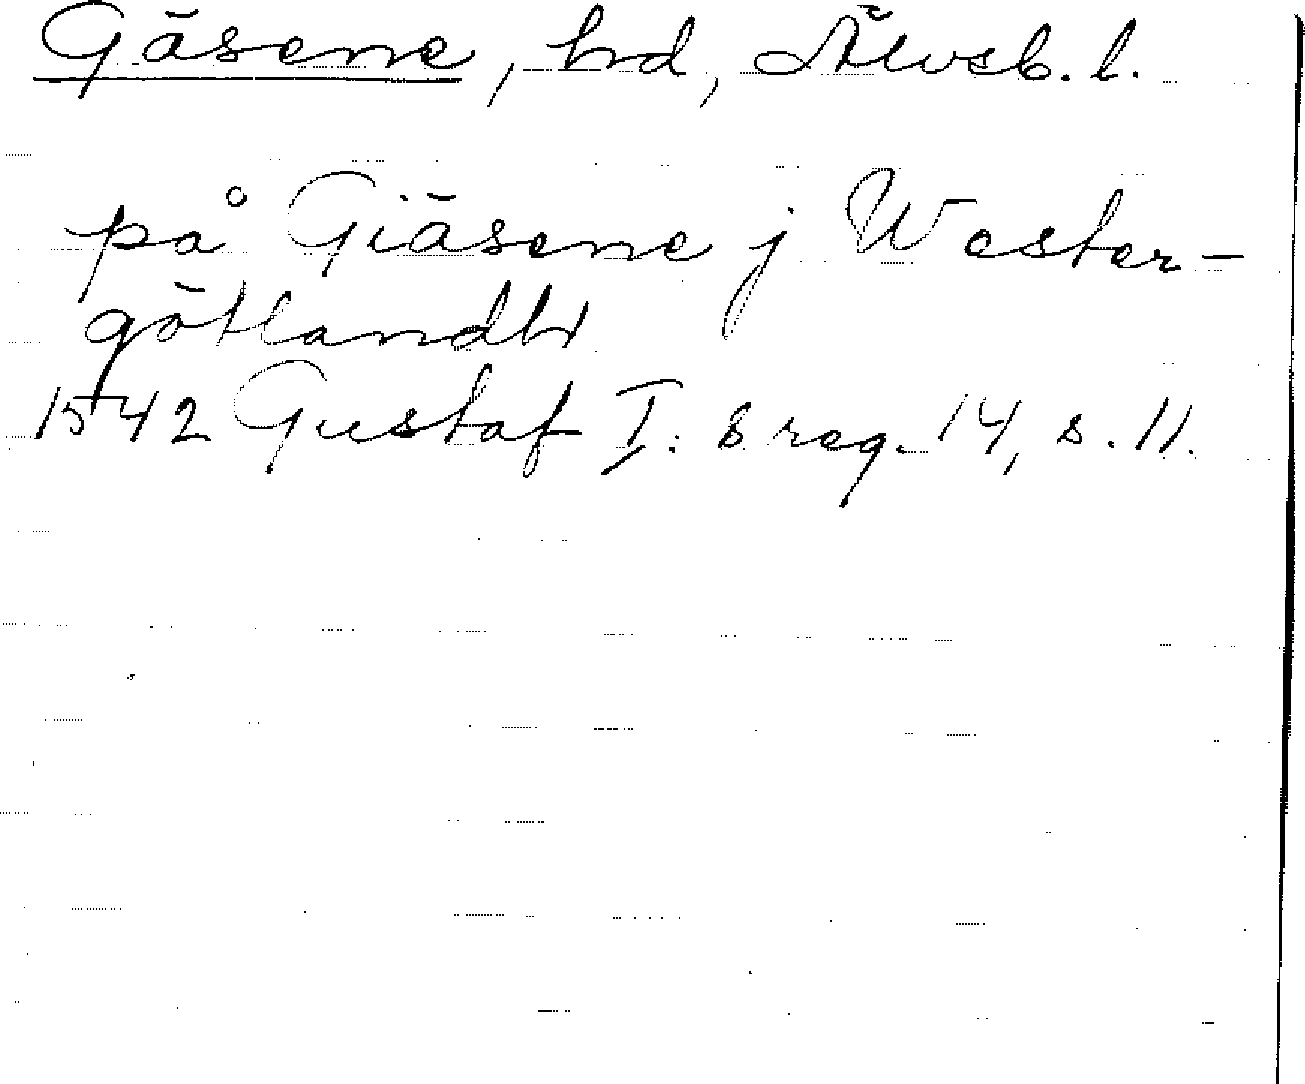 Gäsene, hd, Älvsb. l.
på Giäsene j Wester-
götlandh
1542 Gustaf I:s reg. 14, s. 11.